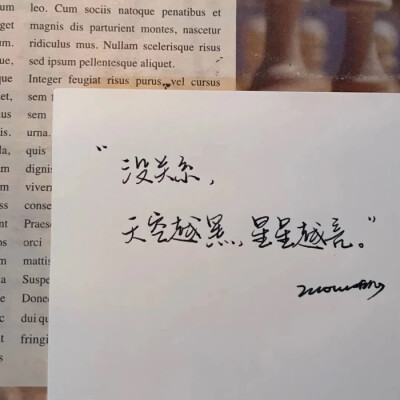 um
get
m.
ue,
leo. Cum sociis natoque penatibus et
magnis dis parturient montes, nascetur
ridiculus mus. Nullam scelerisque risus
sed ipsum pellentesque aliquet.
Integer feugiat risus purus, vel cursus
sem
sem
urna.
quis
dignis
viverr
conse
Praese
orci
mattis
Suspe
Donec
dui qu
fringi
“没关系，
天空越黑，星星越亮。”